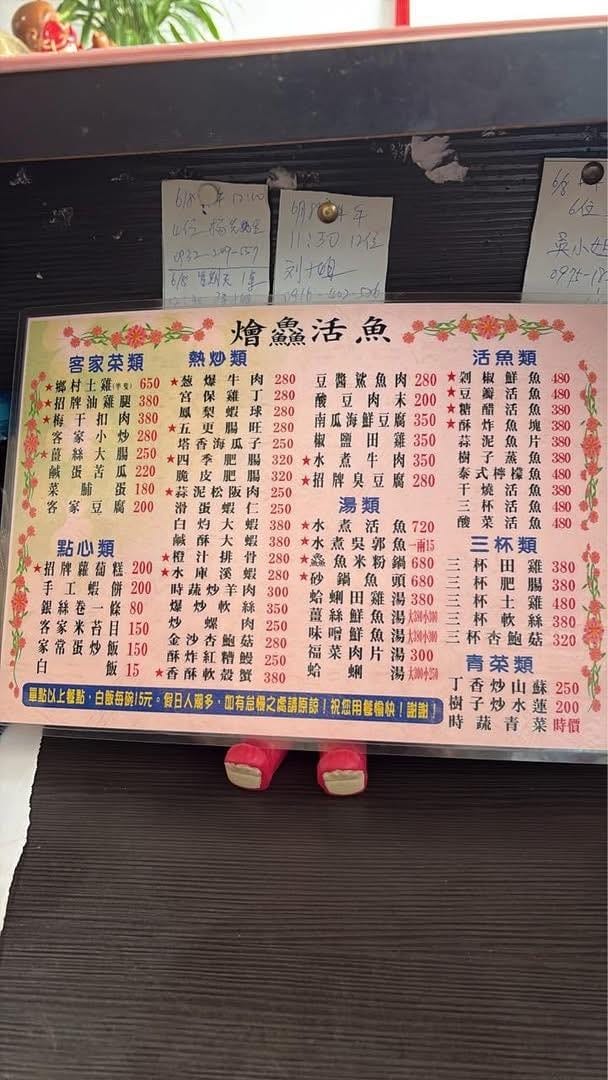 12:00
4位
0932-209-557
6/8 星期天
11:30 12位
刘小姐
6/8
6位
吳小姐
燴鱻活魚
客家菜類
★鄉村土雞(半隻) 650
★招牌油雞腿 380
★梅干扣肉 380
客家小炒 280
★薑絲大腸 250
鹹蛋苦瓜 220
菜脯蛋 180
客家豆腐 200
點心類
★招牌蘿蔔糕 200
手工蝦餅 200
銀絲卷一條 80
客家米苔目 150
家常蛋炒飯 150
白飯 15
熱炒類
★葱爆牛肉 280
宮保雞丁 280
鳳梨蝦球 280
★五更腸旺 280
塔香海瓜子 250
★四季肥腸 320
脆皮肥腸 320
★蒜泥松阪肉 250
滑蛋蝦仁 250
白灼大蝦 380
鹹酥大蝦 380
★橙汁排骨 280
★水庫溪蝦 280
時蔬炒羊肉 300
爆炒軟絲 350
炒螺肉 250
金沙杏鮑菇 280
酥炸紅糟鰻 250
★香酥軟殼蟹 380
豆醬鯊魚肉 280
酸豆肉末 200
南瓜海鮮豆腐 350
椒鹽田雞 350
★水煮牛肉 350
★招牌臭豆腐 280
湯類
★水煮活魚 720
★水煮吳郭魚 一兩15
★鱻魚米粉鍋 680
★砂鍋魚頭 680
蛤蜊田雞湯 380
薑絲鮮魚湯 大380小300
味噌鮮魚湯 大380小300
福菜肉片湯 300
蛤蜊湯 大300小250
活魚類
★剁椒鮮魚 480
★豆瓣活魚 480
★糖醋活魚 480
★酥炸魚塊 380
蒜泥魚片 380
樹子蒸魚 480
泰式檸檬魚 480
干燒活魚 480
三杯活魚 480
酸菜活魚 480
三杯類
三杯田雞 380
三杯肥腸 380
三杯土雞 480
三杯軟絲 380
三杯杏鮑菇 320
青菜類
丁香炒山蘇 250
樹子炒水蓮 200
時蔬青菜 時價
單點以上餐點，白飯每碗15元。假日人潮多，如有怠慢之處請原諒！祝您用餐愉快！謝謝！